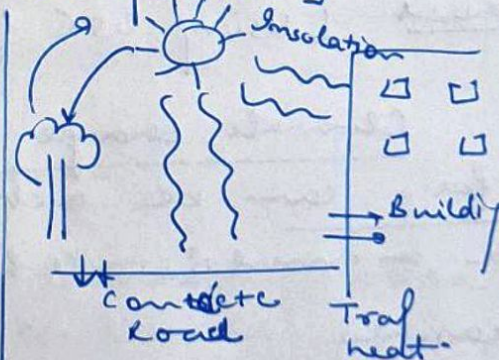 Insolation
Buildi
Concrete
Road
Traf
heat